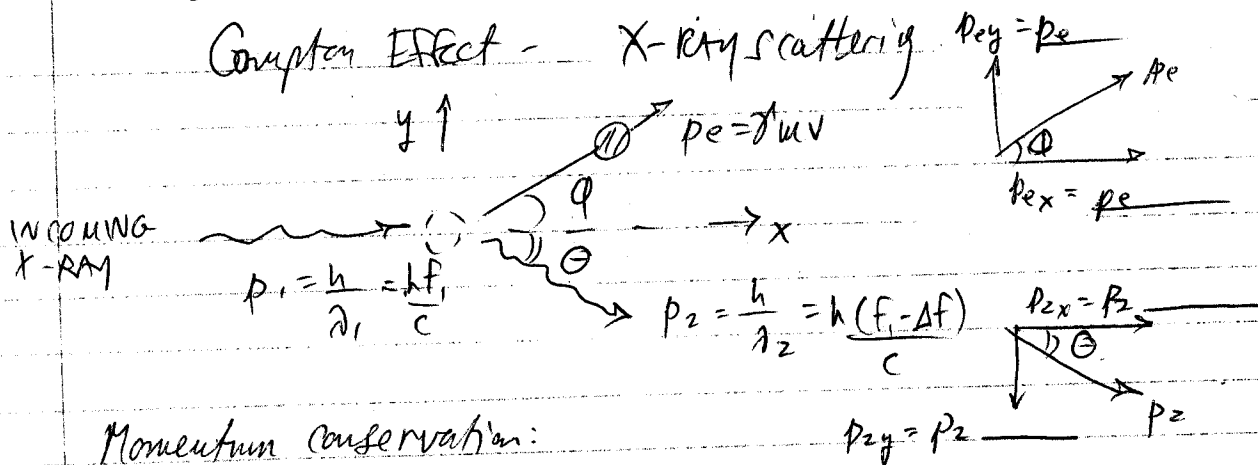 Compton Effect - X-RAY scattering
pey = pe ____
pe
y
pe = γmv
φ
φ
pex = pe ____
INCOMING
X-RAY
x
θ
p₁ = h/λ₁ = hf₁/c
p₂ = h/λ₂ = h(f₁-Δf)/c
p₂x = p₂ ____
θ
p₂
p₂y = p₂ ____
Momentum conservation: